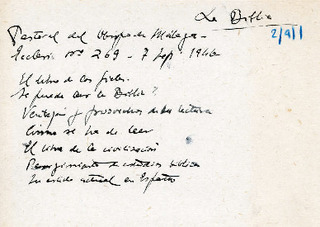 La Biblia
2/9/1
Pastoral del Obispo de Málaga -
Ecclesia nº 269 - 7 Sep. 1946
El libro de los fieles.
Se puede leer la Biblia?
Ventajas y provechos de su lectura
Cómo se ha de leer
El libro de la civilización
Resurgimiento de estudios bíblicos
Su estado actual en España